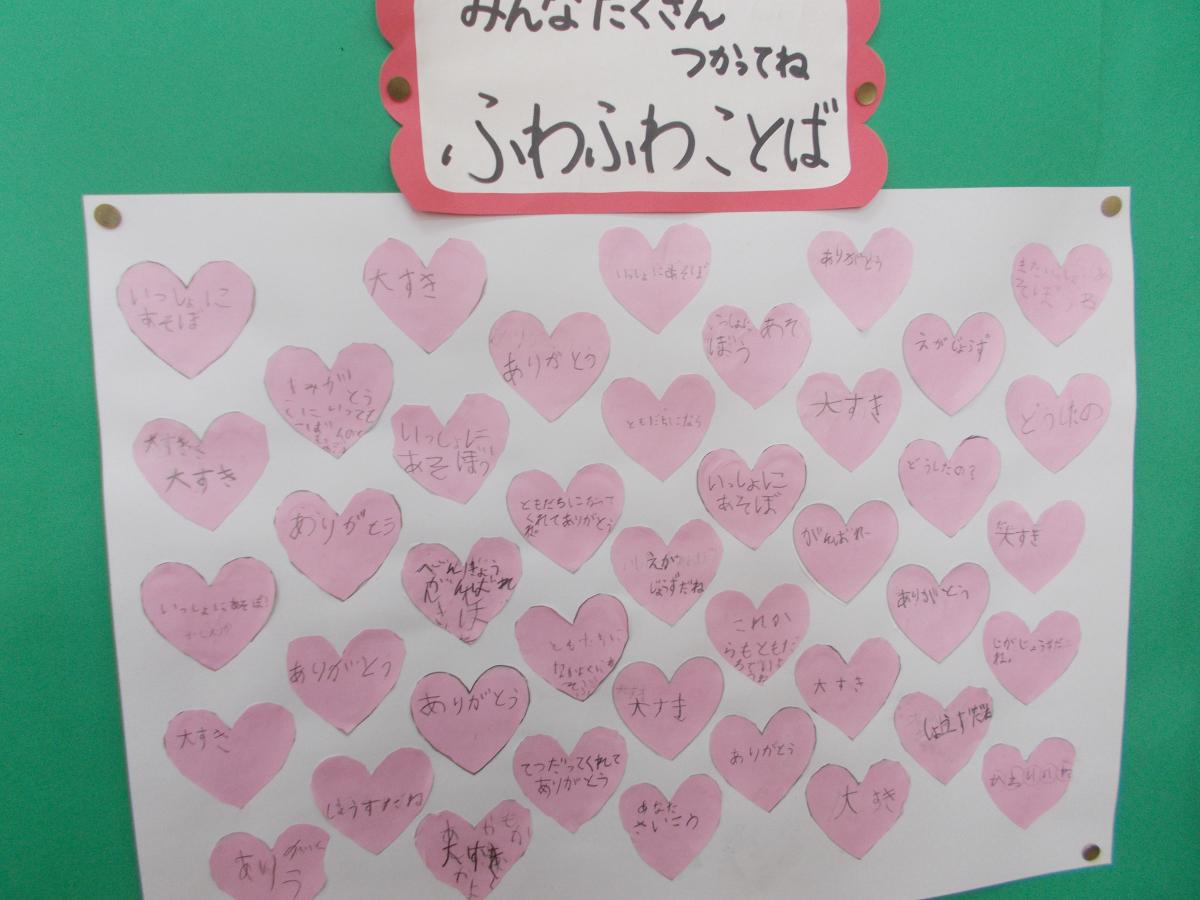 みんなたくさん
つかってね
ふわふわことば
いっしょに
あそぼ
大すき
いっしょにあそぼ
ありがとう
ありがとう
いっしょに あそ
ぼう
えがじょうず
いっしょに
あそぼう
ともだちになろ
大すき
どうしたの
大すき
大すき
ありがとう
ともだちになって
くれてありがとう
ね
いっしょに
あそぼ
どうしたの?
がんばれー
大すき
いっしょにあそぼ!
べんきょう
がんばれ
えが
じょうずだね
ありがとう
ともだちに
これか
らもともだ
じがじょうずだ
ね。
ありがとう
ありがとう
大すき
大すき
大すき
てつだってくれて
ありがとう
ありがとう
じょうずだね
あなた
さいこう
大すき
大すき